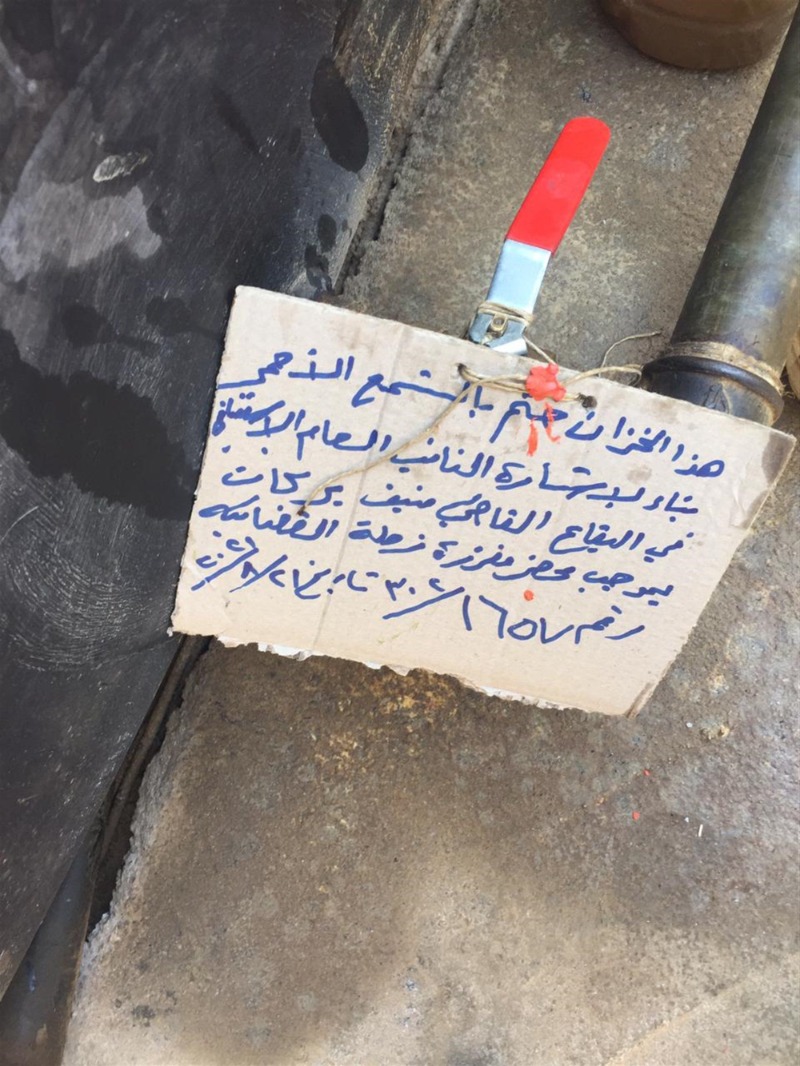 هذا الخزان ختم بالشمع الأحمر
بناء لإستشارة النائب العام الإستئنافي
في البقاع القاضي منيف بركات
بموجب محضر مفرزة زحلة القضائية
رقم ١٦٥٧/٣٠٢ تاريخ ٢١/٨/